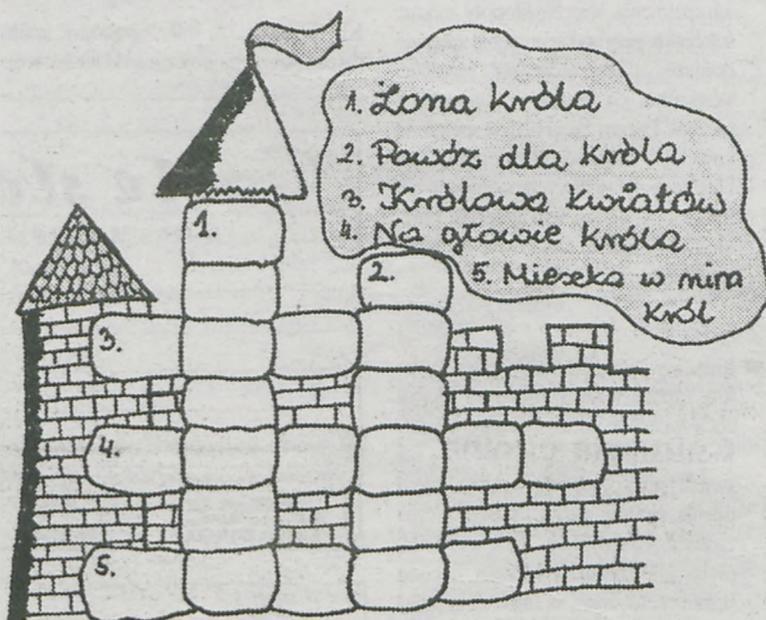 1. Żona króla
2. Powóz dla króla
3. Królowa kwiatów
4. Na głowie króla
5. Mieszka w nim
król
1.
2.
3.
4.
5.